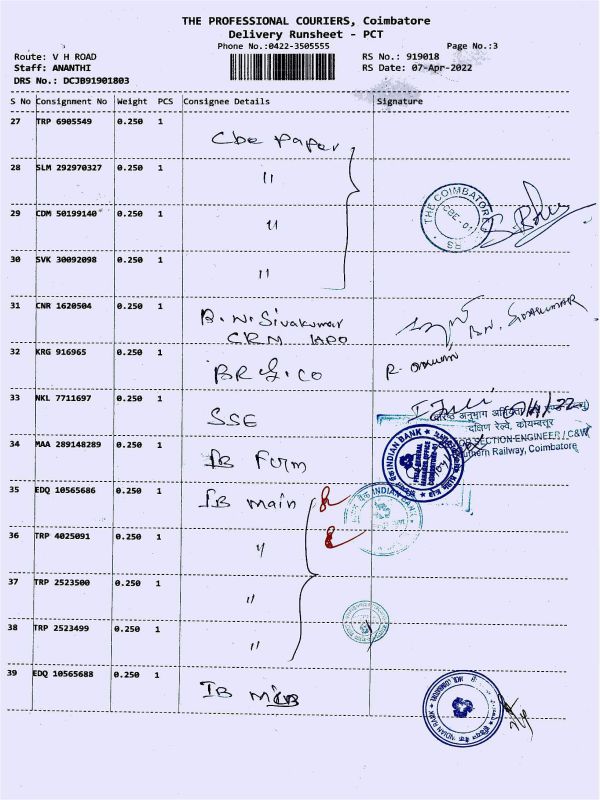 THE PROFESSIONAL COURIERS, Coimbatore
Delivery Runsheet - PCT
Phone No.:0422-3505555
Page No.:3
Route: V H ROAD
RS No.: 919018
Staff: ANANTHI
RS Date: 07-Apr-2022
DRS No.: DCJB91901803
S No Consignment No Weight PCS Consignee Details Signature
27 TRP 6905549 0.250 1
Cbe Paper
28 SLM 292970327 0.250 1
"
THE COIMBATORE
CBE-01
RS
29 CDM 50199140 0.250 1
"
30 SVK 30092098 0.250 1
"
31 CNR 1620504 0.250 1
B.N. Sivakumar
B.N. SIVAKUMAR
CRM
32 KRG 916965 0.250 1
BR & CO
33 NKL 7711697 0.250 1
SSE
दक्षिण रेल्वे, कोयम्बत्तूर
SECTION ENGINEER / C&W
Southern Railway, Coimbatore
34 MAA 289148289 0.250 1
IB Furm
INDIAN BANK
35 EDQ 10565686 0.250 1
IB main
INDIAN BANK
36 TRP 4025091 0.250 1
"
37 TRP 2523500 0.250 1
"
38 TRP 2523499 0.250 1
"
39 EDQ 10565688 0.250 1
IB
INDIAN BANK